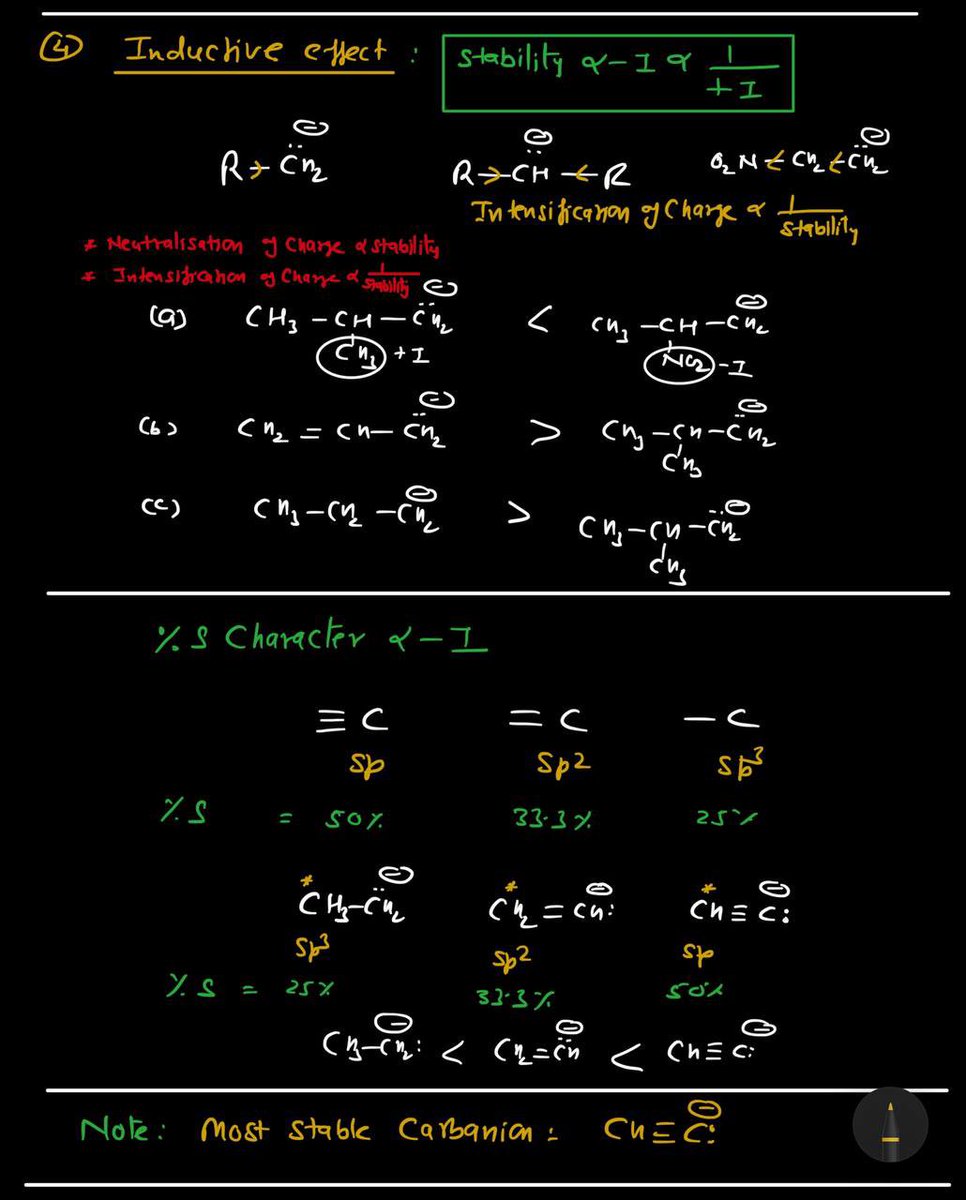 ④ Inductive effect : Stability ∝ -I ∝ 1/+I
R→C̈H₂⊖ R→C̈H⊖←R O₂N←CH₂←C̈H₂⊖
Intensification of Charge ∝ 1/Stability
* Neutralisation of Charge ∝ stability
* Intensification of Charge ∝ 1/stability
(a) CH₃-CH(CH₃)-C̈H₂⊖ < CH₃-CH(NO₂)-C̈H₂⊖
+I -I
(b) CH₂=CH-C̈H₂⊖ > CH₃-CH(CH₃)-C̈H₂⊖
(c) CH₃-CH₂-C̈H₂⊖ > CH₃-CH(CH₃)-C̈H₂⊖
% S Character ∝ -I
≡C =C -C
Sp Sp2 Sp³
% S = 50% 33.3% 25%
*CH₃-C̈H₂⊖ *CH₂=CH:⊖ *CH≡C:⊖
Sp³ Sp2 Sp
% S = 25% 33.3% 50%
CH₃-CH₂:⊖ < CH₂=C̈H⊖ < CH≡C:⊖
Note: Most stable Carbanion = CH≡C:⊖